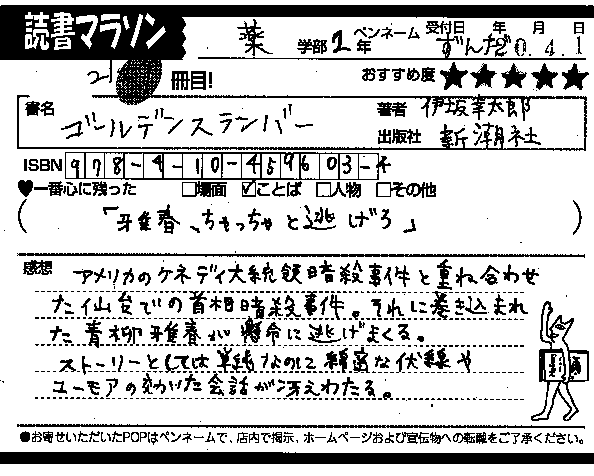 読書マラソン
薬 学部 2年 ペンネーム ずんだ 受付日 年 月 日 0.4.1
21 冊目!
おすすめ度 ★★★★★
書名 ゴールデンスランバー
著者 伊坂幸太郎
出版社 新潮社
ISBN 978-4-10-459603-4
♥一番心に残った □場面 ☑ことば □人物 □その他
(「雅春、ちゃっちゃと逃げろ」)
感想 アメリカのケネディ大統領暗殺事件と重ね合わせ
た仙台での首相暗殺事件。それに巻き込まれ
た青柳雅春が懸命に逃げまくる。
ストーリーとしては単純なのに綿密な伏線や
ユーモアの効いた会話が冴えわたる。
●お寄せいただいたPOPはペンネームで、店内で掲示、ホームページおよび宣伝物への転載をご了承ください。